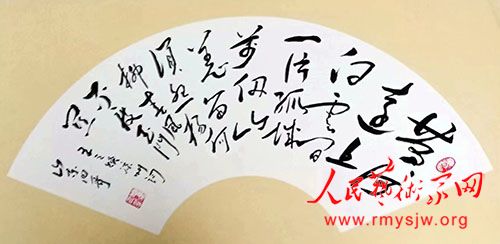 黄河
远上
白云间
一片孤城
万仞山
羌笛何
须怨杨
柳春风
不度玉门
关
王之涣凉州词
人民艺术家网
www.rmysjw.org